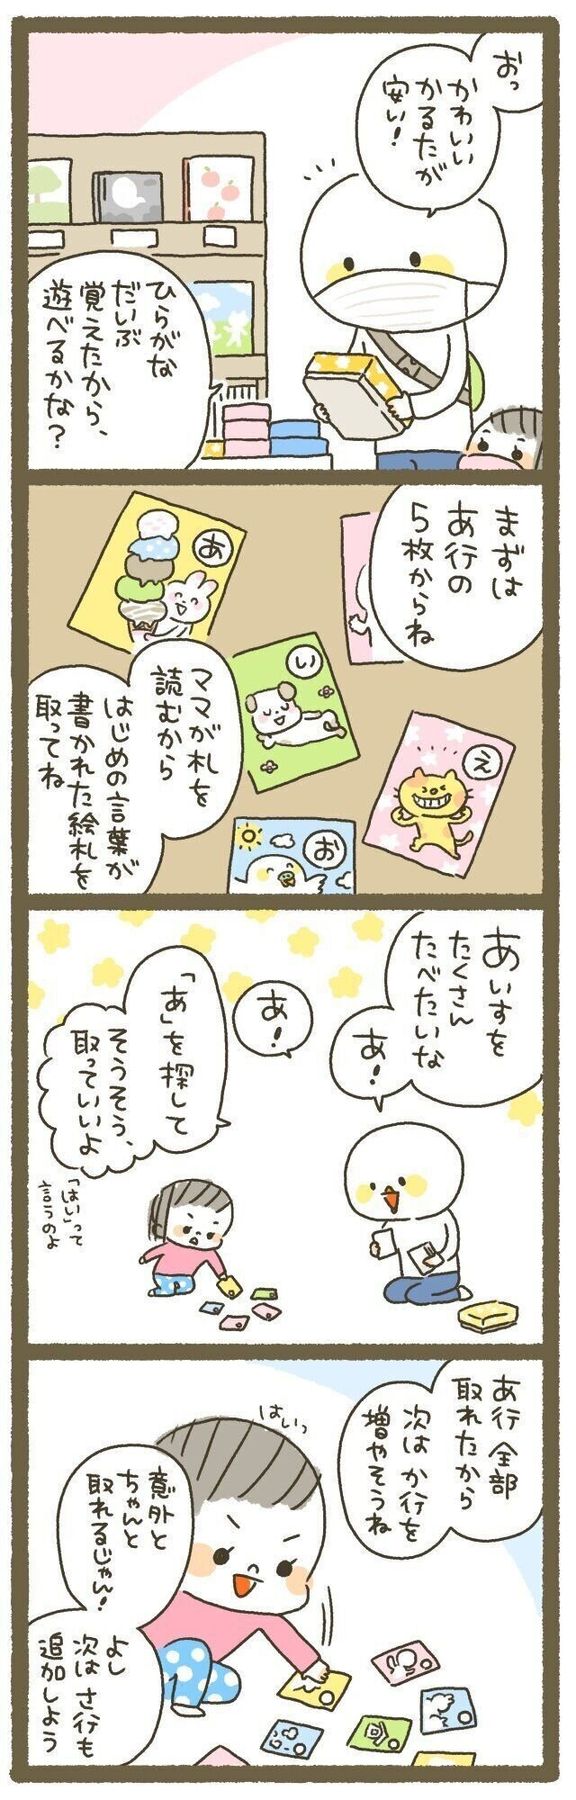 おっ
かわいい
かるたが
安い！
ひらがな
だいぶ
覚えたから、
遊べるかな？
まずは
あ行の
5枚からね
あ
い
え
お
ママが札を
読むから
はじめの言葉が
書かれた絵札を
取ってね
あいすを
たくさん
たべたいな
あ！
あ！
「あ」を探して
そうそう、
取っていいよ
「はい」って
言うのよ
あ行 全部
取れたから
次は か行を
増やそうね
はいっ
意外と
ちゃんと
取れるじゃん！
よし
次は さ行も
追加しよう